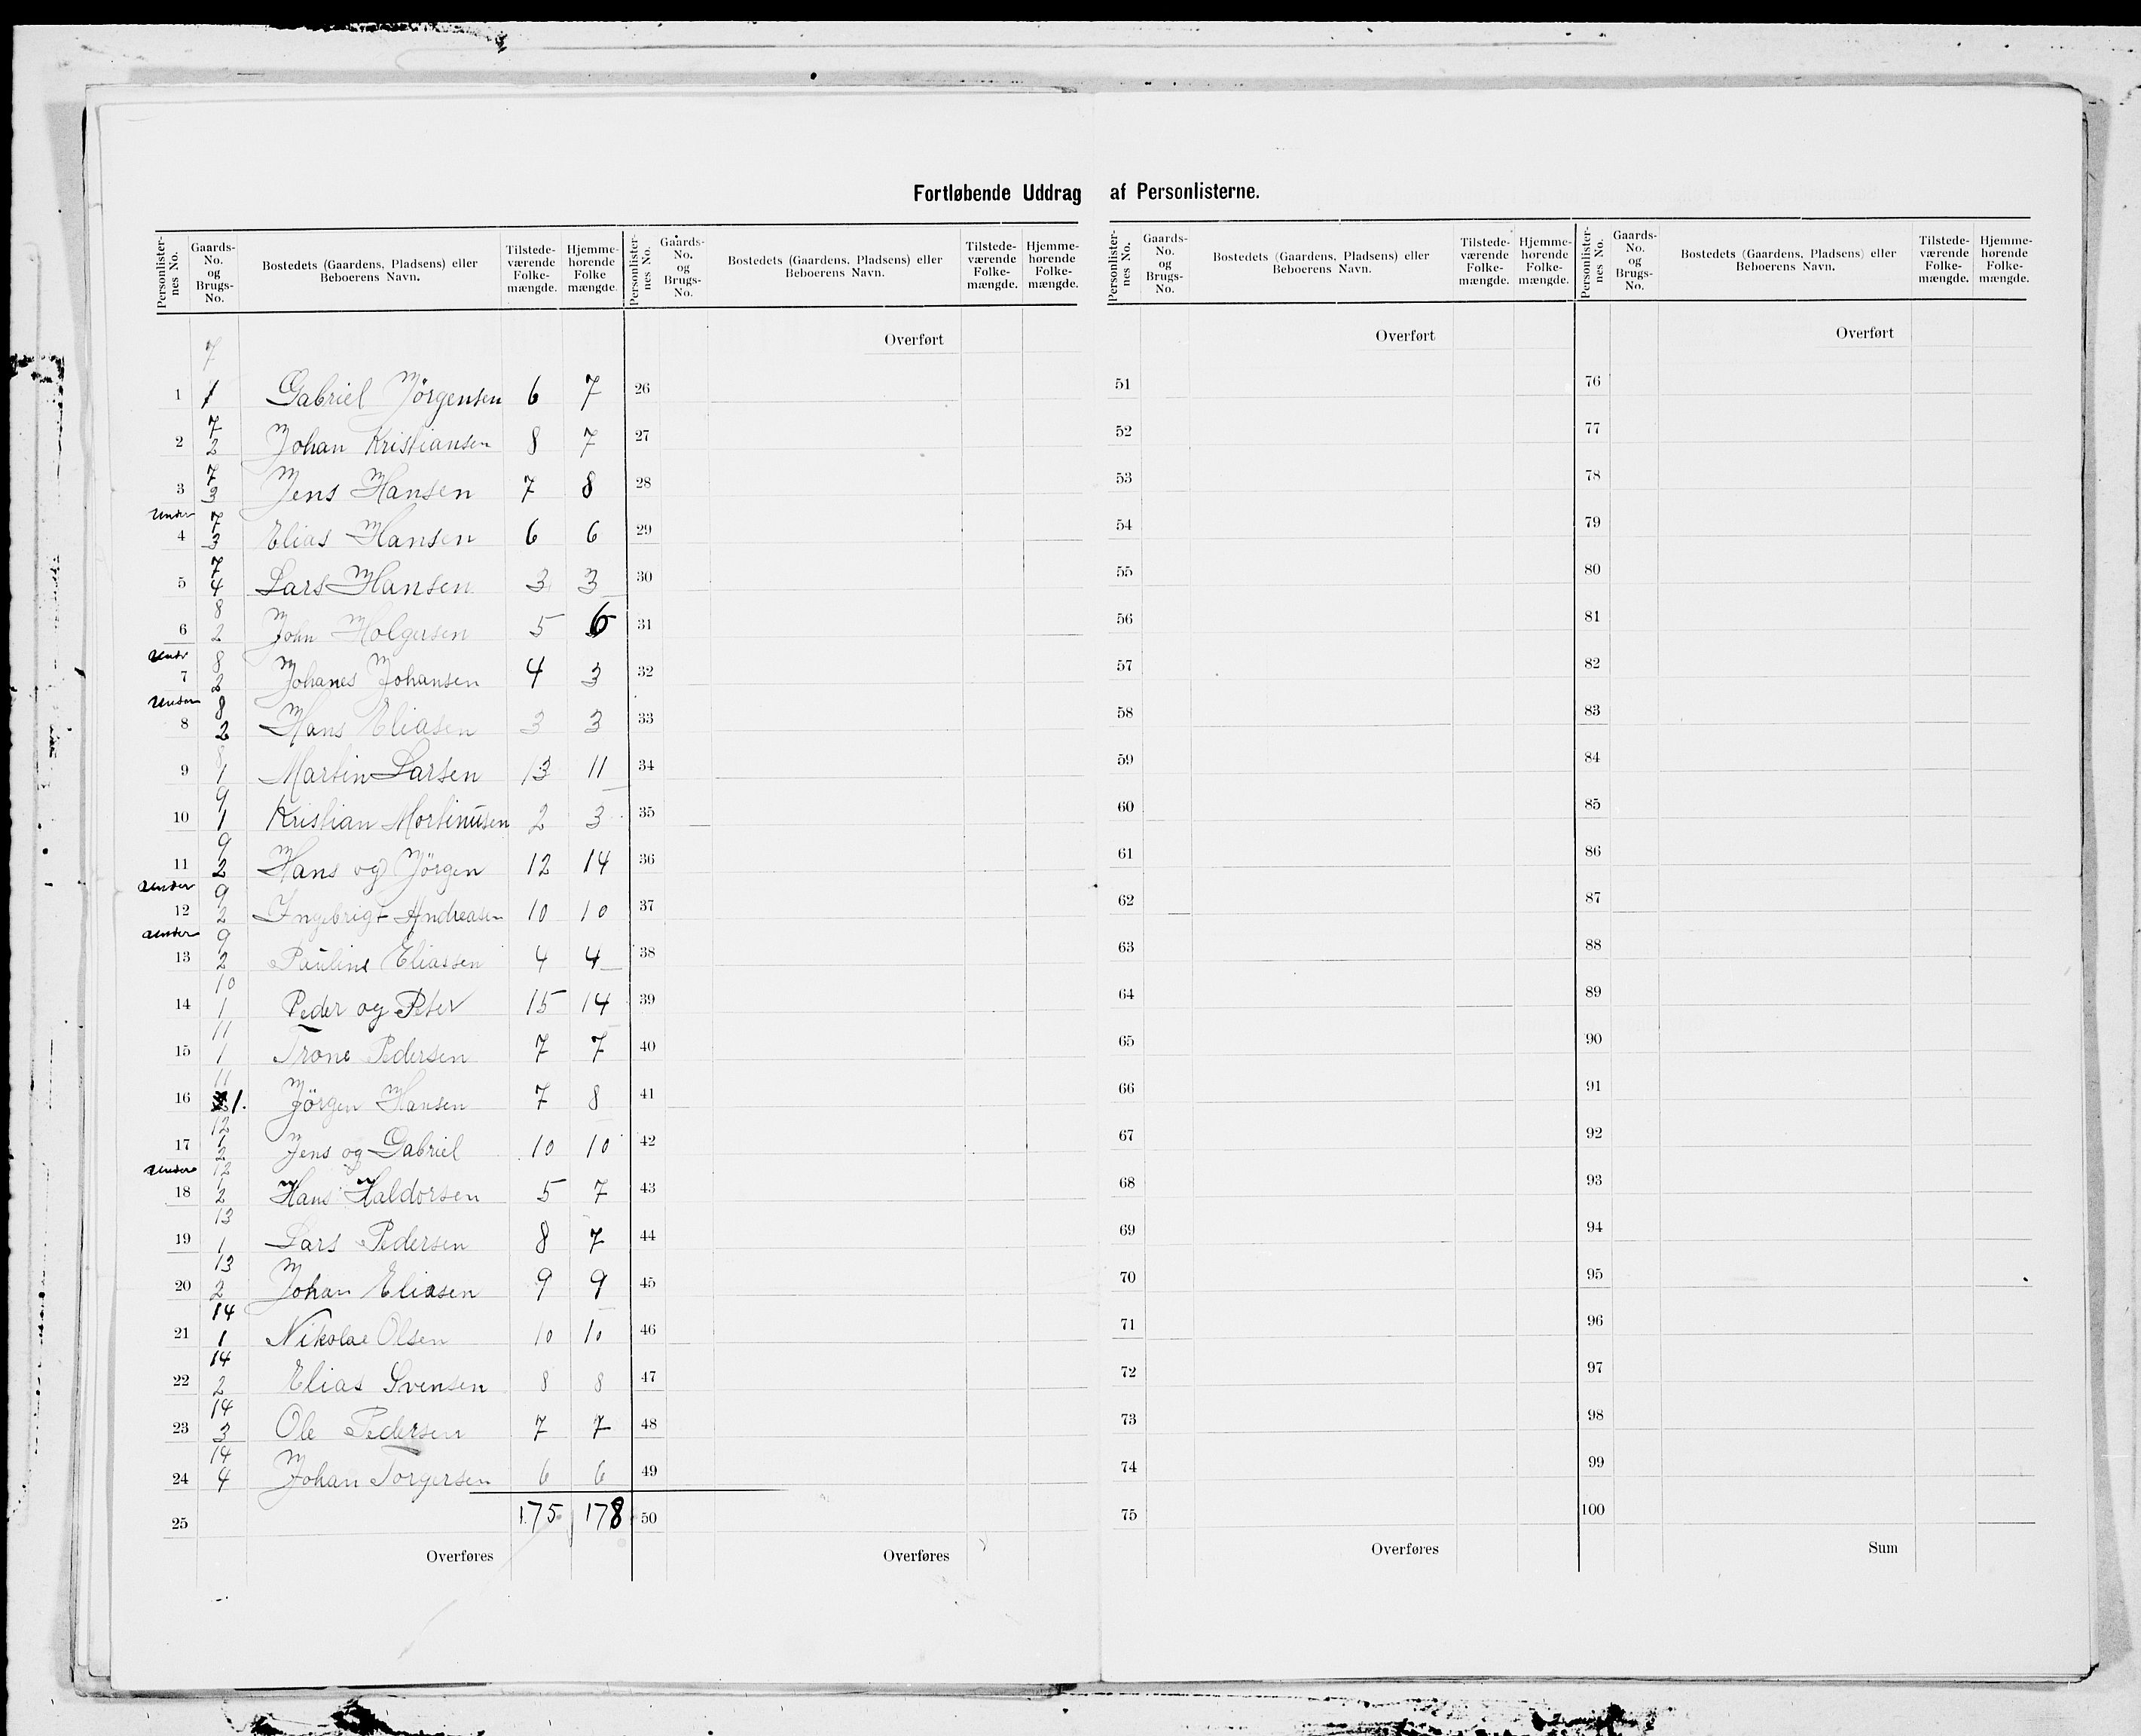 Fortløbende Uddrag af Personlisterne.
Personlister-nes No. | Gaards-No. og Brugs-No. | Bostedets (Gaardens, Pladsens) eller Beboerens Navn. | Tilstede-værende Folke-mængde. | Hjemme-hørende Folke mængde.
7
1 1 Gabriel Jörgensen 6 7
2 7 2 Johan Kristiansen 8 7
3 7 3 Jens Hansen 7 8
under
4 7 3 Elias Hansen 6 6
5 7 4 Lars Hansen 3 3
6 8 2 John Holgersen 5 6
under
7 8 2 Johanes Johansen 4 3
under
8 8 2 Hans Eliasen 3 3
9 8 1 Martin Larsen 13 11
10 9 1 Kristian Mortinusen 2 3
11 9 2 Hans og Jörgen 12 14
under
12 9 2 Ingebrigt Andreasen 10 10
under
13 9 2 Pauline Eliassen 4 4
14 10 1 Peder og Peter 15 14
15 11 1 Trone Pedersen 7 7
16 11 1. Jörgen Hansen 7 8
17 12 1 2 Jens og Gabriel 10 10
under
18 12 1 2 Hans Haldorsen 5 7
19 13 1 Lars Pedersen 8 7
20 13 2 Johan Eliasen 9 9
21 14 1 Nikolae Olsen 10 10
22 14 2 Elias Svensen 8 8
23 14 3 Ole Pedersen 7 7
24 14 4 Johan Torgersen 6 6
25 175 178
Overføres
Personlister-nes No. | Gaards-No. og Brugs-No. | Bostedets (Gaardens, Pladsens) eller Beboerens Navn. | Tilstede-værende Folke-mængde. | Hjemme-hørende Folke-mængde.
Overført
26
27
28
29
30
31
32
33
34
35
36
37
38
39
40
41
42
43
44
45
46
47
48
49
50
Overføres
Personlister-nes No. | Gaards-No. og Brugs-No. | Bostedets (Gaardens, Pladsens) eller Beboerens Navn. | Tilstede-værende Folke-mængde. | Hjemme-hørende Folke-mængde.
Overført
51
52
53
54
55
56
57
58
59
60
61
62
63
64
65
66
67
68
69
70
71
72
73
74
75
Overføres
Personlister-nes No. | Gaards-No. og Brugs-No. | Bostedets (Gaardens, Pladsens) eller Beboerens Navn. | Tilstede-værende Folke-mængde. | Hjemme-hørende Folke-mængde.
Overført
76
77
78
79
80
81
82
83
84
85
86
87
88
89
90
91
92
93
94
95
96
97
98
99
100
Sum